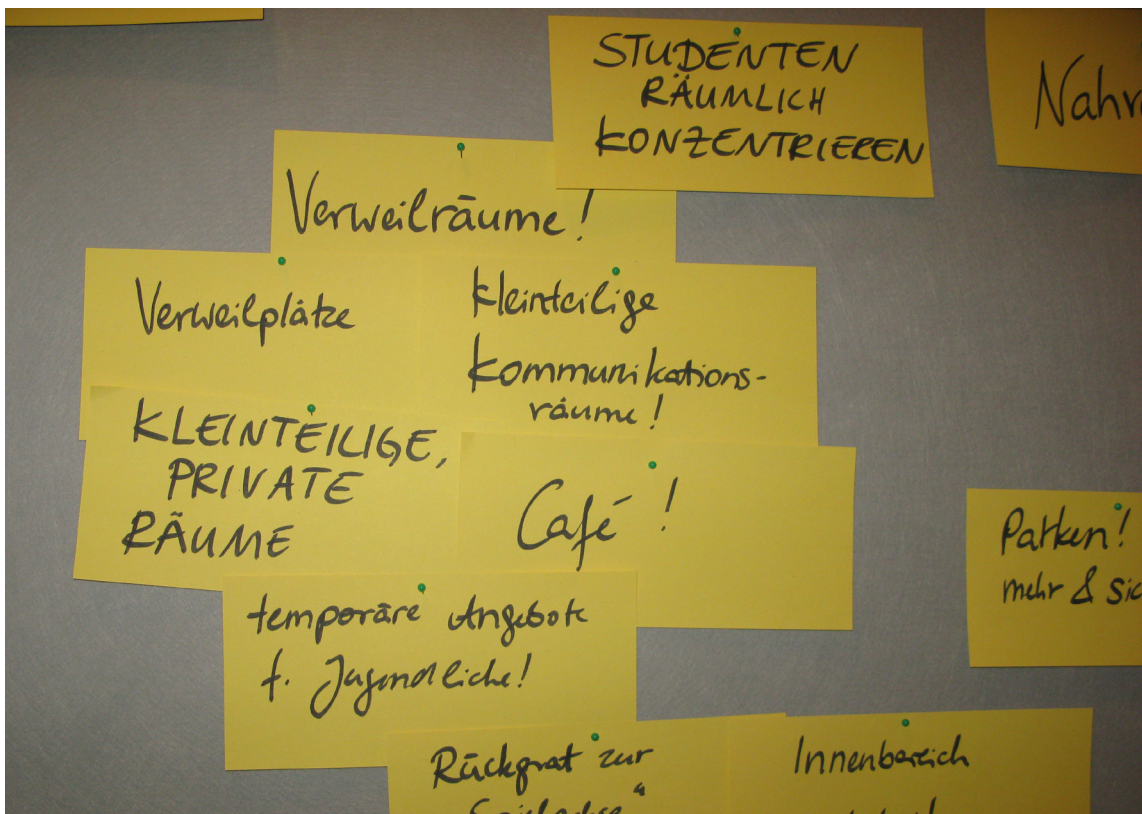 STUDENTEN
RÄUMLICH
KONZENTRIEREN
Verweilräume!
Verweilplätze
kleinteilige
kommunikations-
räume!
KLEINTEILIGE,
PRIVATE
RÄUME
Café!
Parken!
mehr &
temporäre Angebote
f. Jugendliche!
Rückgrat zur
Innenbereich